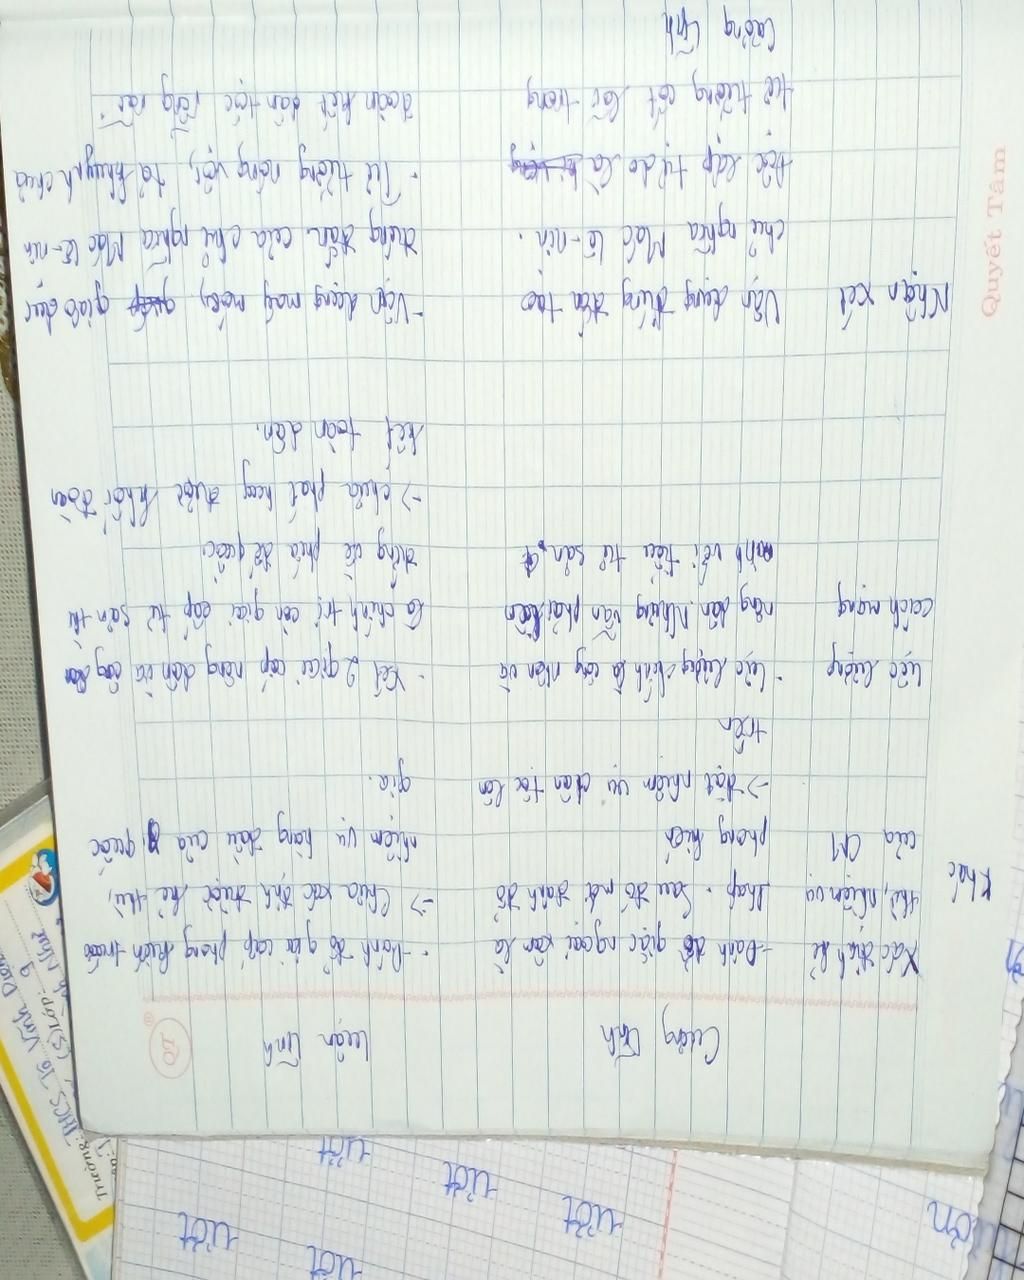 Cương lĩnh
Luận cương
Khác
Xác định kẻ
thù, nhiệm vụ
của CM
- Đánh đổ giặc ngoại xâm là
Pháp. Sau đó mới đánh đổ
phong kiến
-> Đặt nhiệm vụ dân tộc lên
trên
- Đánh đổ giai cấp phong kiến trước
-> Chưa xác định được kẻ thù,
nhiệm vụ hàng đầu của quốc
gia.
Lực lượng
cách mạng
- Lực lượng chính là công nhân và
nông dân. Nhưng vẫn phải liên
minh với tiểu tư sản.
- Xét 2 giai cấp nông dân và công dân
là chính trị còn giai cấp tư sản thì
đứng về phía đế quốc.
-> chưa phát huy được khối đoàn
kết toàn dân.
Nhận xét
Vận dụng đúng đắn tạo
chủ nghĩa Mác Lê-nin.
Độc lập tự do là
tư tưởng cốt lõi trong
Cương lĩnh
- Vận dụng máy móc, giáo dục
đúng đắn của chủ nghĩa Mác Lê-nin
- Tư tưởng nóng vội, tả khuynh chưa
đoàn kết dân tộc rộng rãi.
Quyết Tâm
QT
Trường: THCS Tô Vĩnh Diện
Lớp: 9
ướt
ướt
ướt
ướt
ướt